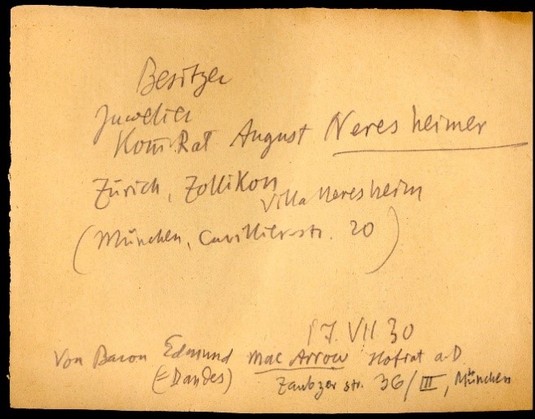 Besitzer
Juwelier
Kom.Rat August Neresheimer
Zürich, Zollikon
Villa Neresheim
(München, Cuvilliersstr. 20)
17. VII 30
Von Baron Edmund Mac Arrow Hofrat a.D.
36/III, München